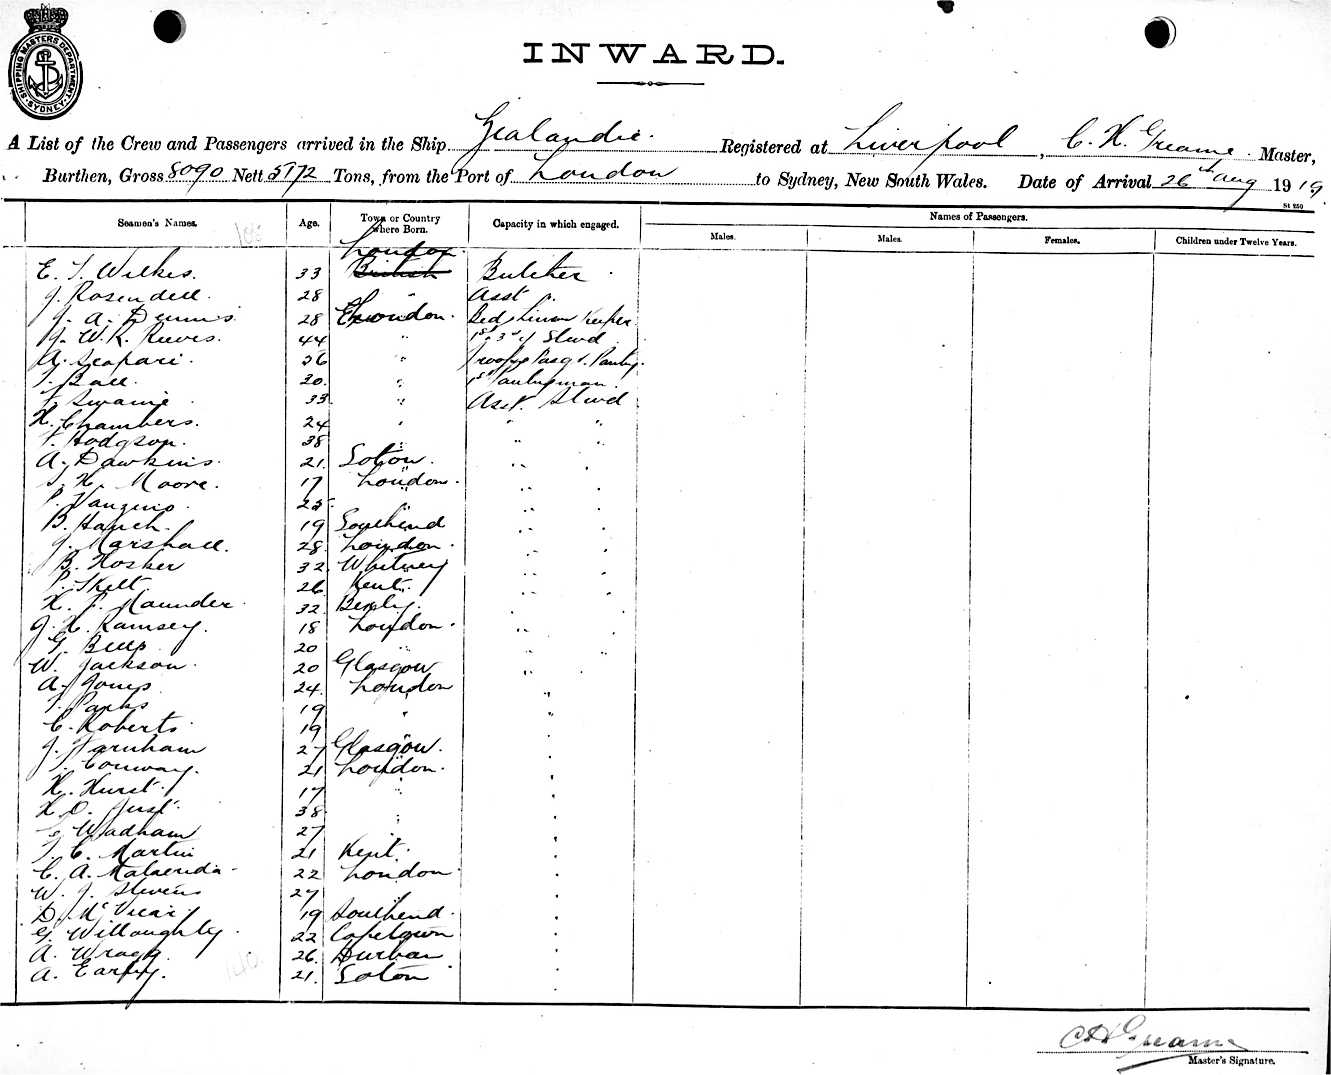 SHIPPING MASTERS DEPARTMENT
SYDNEY
INWARD.
A List of the Crew and Passengers arrived in the Ship Zealandic. Registered at Liverpool, C. H. Greame. Master,
Burthen, Gross 8090 Nett 5172 Tons, from the Port of London to Sydney, New South Wales. Date of Arrival 26th Aug 1919.
St 250
Seamen's Names. Age. Town or Country where Born. Capacity in which engaged. Names of Passengers.
Males. Males. Females. Children under Twelve Years.
London
E. T. Wilkes. 33 British Butcher
J. Rosendell. 28 " Asst "
J. A. Dennis 28 London. Bed & Linen Keeper
J. W. R. Reeves. 44 " 1st & 3rd cl Stwd
A. 36 "
T. Ball 20 "
F. Swanie 33 " Asst. Stwd
H. Chambers. 24 " " "
F. Hodgson. 38 " " "
A. Dawkins. 21. Soton. " "
T. H. Moore. 17 London. " "
P. 25 " " "
B. 19 Southend " "
J. Marshall. 28 London. " "
B. Hosker 32 Whitney " "
P. Skelt 26 Kent. " "
H. P. Maunder. 32 Bexley. " "
J. H. Ramsey. 18 London. " "
G. 20 " " "
W. Jackson. 20 Glasgow " "
A. Jones 24 London "
T. Parks 19 " "
C. Roberts 19 " "
J. Farnham 27 Glasgow. "
T. Conway. 21 London. "
H. Hurst. 17 " "
H. D. Just. 38 " "
E. Wadham 27 " "
T. C. Martin 21 Kent. "
C. A. 22 London "
W. J. Stevens 27 " "
D. McVicar 19 Southend. "
G. Willoughby. 22 Capetown "
A. Wragg. 26. Durban "
A. Earpy. 21. Soton "
C H Greame
Master's Signature.